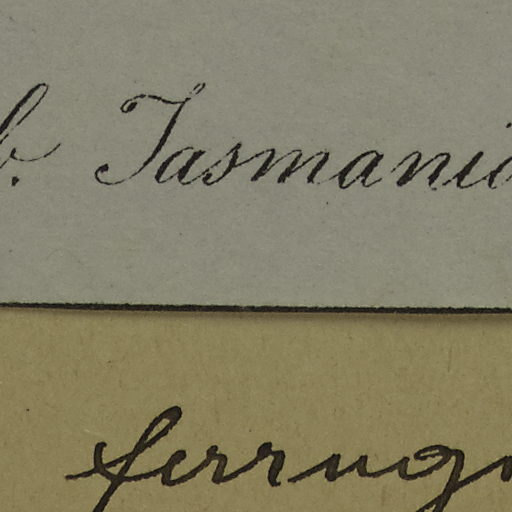 b. Tasmania
ferrug